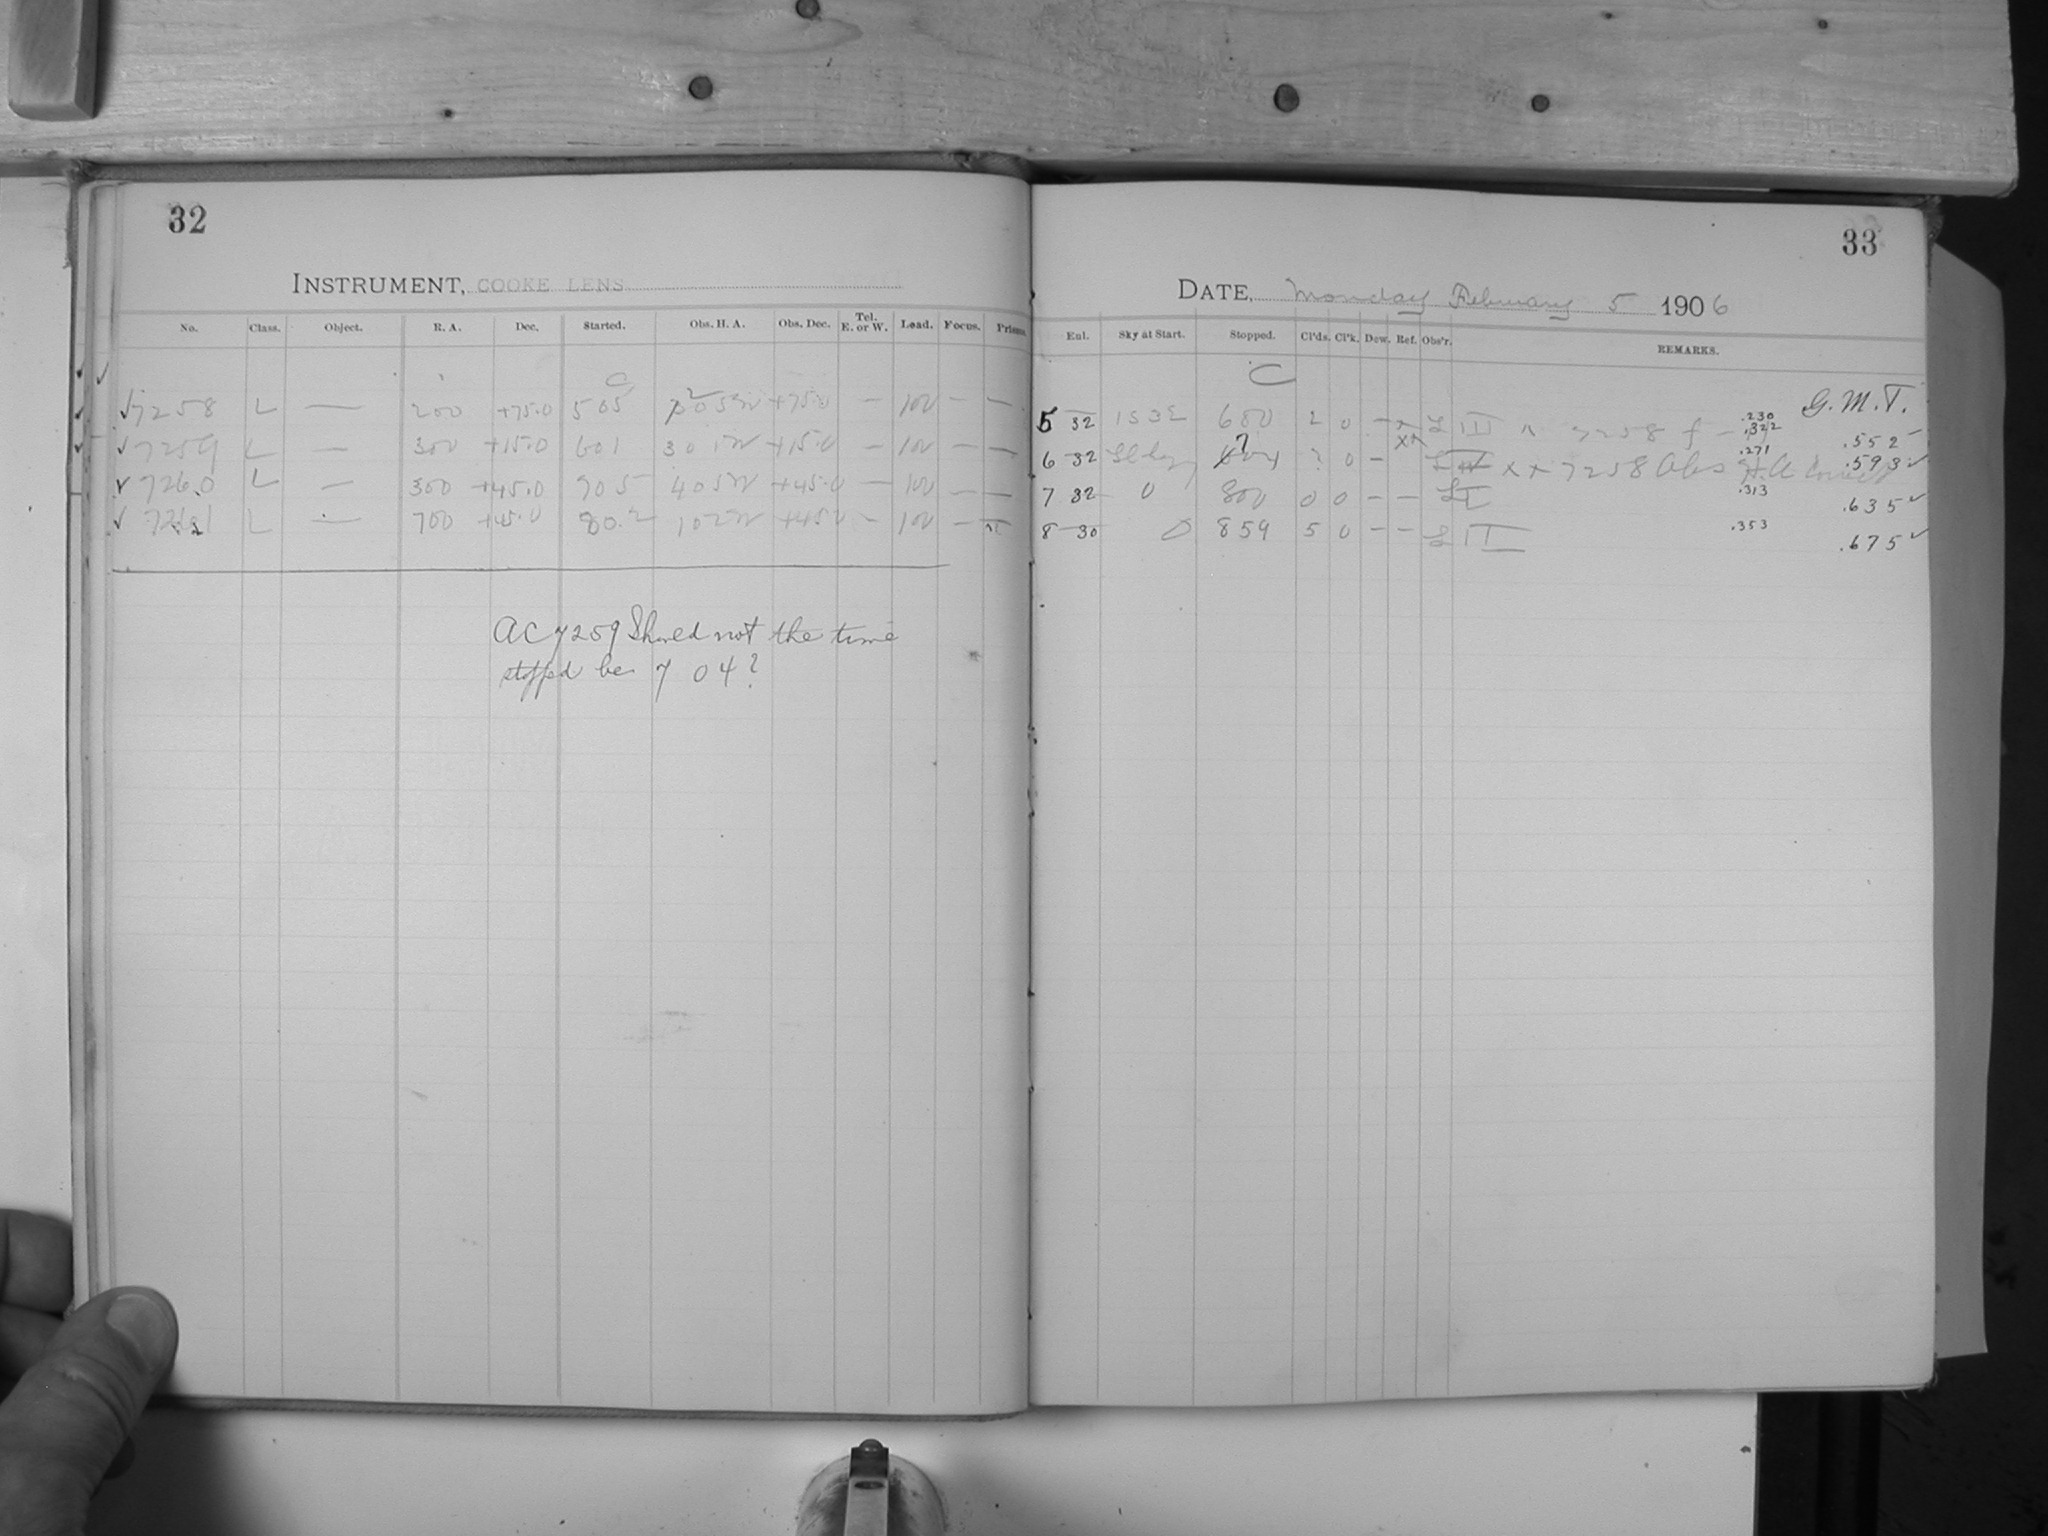 32
INSTRUMENT, COOKE LENS
No. Class. Object. R. A. Dec. Started. Obs. H. A. Obs. Dec. Tel. E. or W. Load. Focus. Prisms.
C
√7258 L — 200 +75.0 505 +75.0 — 100 — —
√7259 L — 300 +15.0 601 +15.0 — 100 — —
√7260 L — 300 +45.0 705 +45.0 — 100 — —
√ L — 700 +45.0 80.2 +45.0 — 100 —
AC 7259 Should not the time
stopped be 7 04?
33
DATE, Monday February 5 1906
Exl. Sky at Start. Stopped. Cl'ds. Cl'k. Dew. Ref. Obs'r. REMARKS.
C G. M. T.
5 32 600 2 0 — x L III x 7258 .230 .322 .552
6 32 7 ? 0 — xx L xx 7258 Obs H.A. .271 .593 √
7 32 0 800 0 0 — — L I .313 .635 √
8 30 0 859 5 0 — — L II .353 .675 √